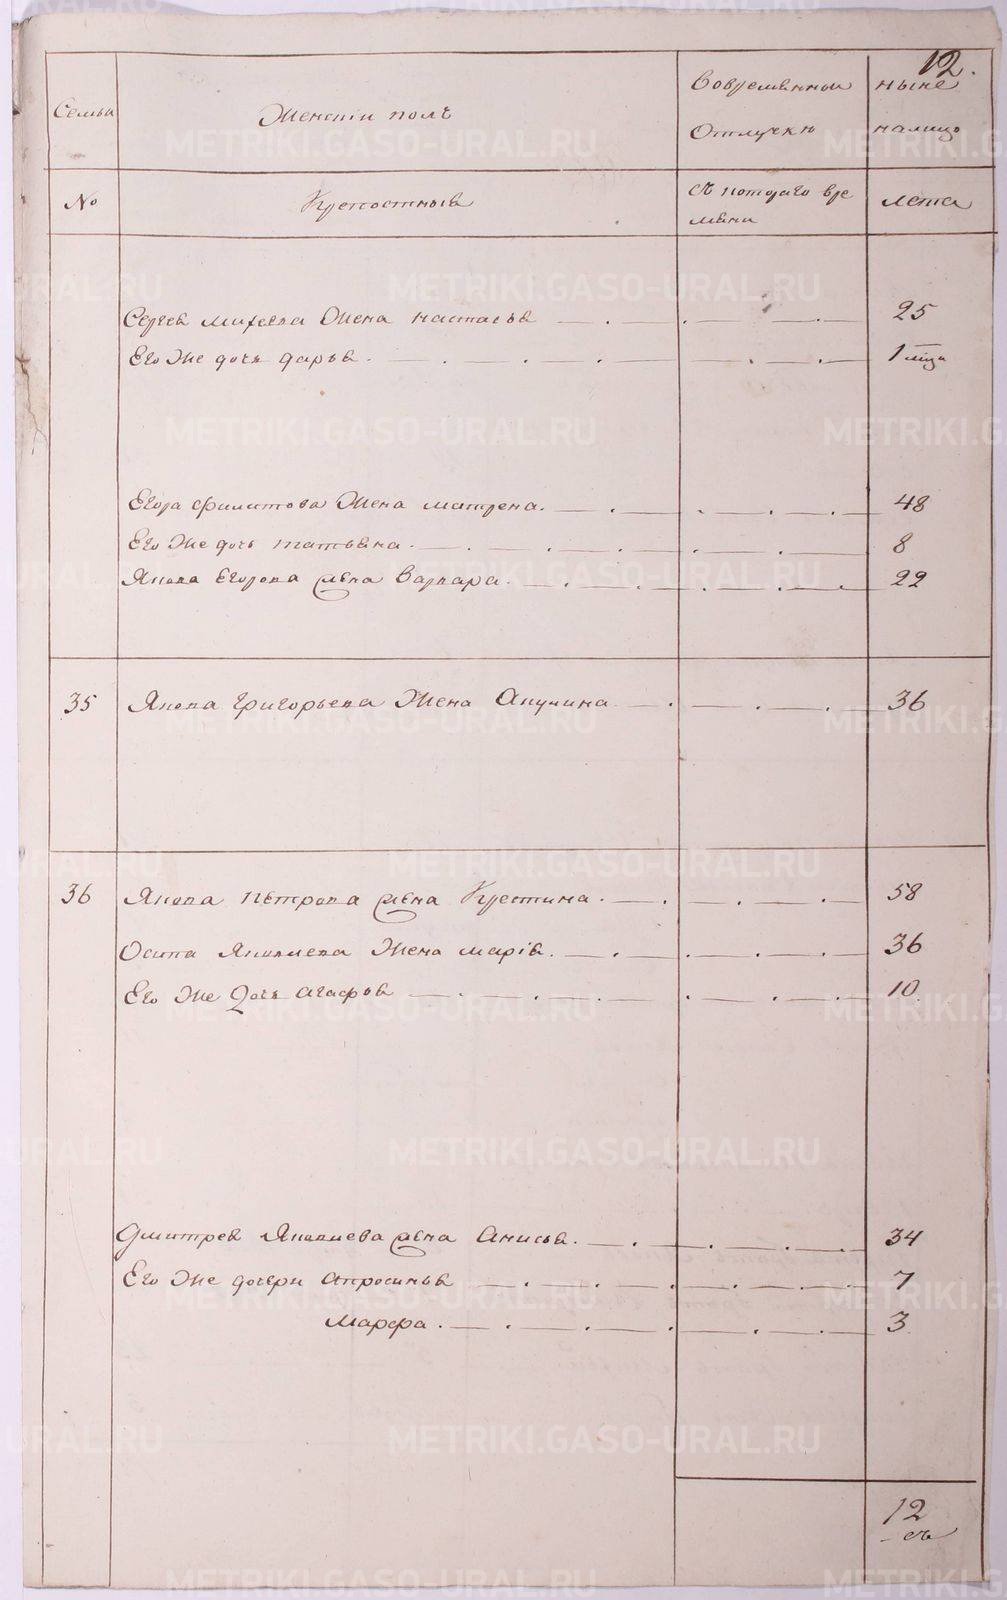 12.
Семьи
Женскiи полъ
Вовременнои
Отлучкѣ
ныне
налицо
No
Крепостныя
Съ котораго вре
мѣни
лета
Сергея михеева Жена настасья 25
Его Же дочь дарья 1 м͞ца
Егора филатова Жена матрена. 48
Его Же дочь татьяна 8
Якова Егорова жена Варвара 22
35 Якова григорьева Жена Акулина 36
36 Якова Петрова жена Крестина 58
Осипа Яковлева Жена марiя. 36
Его Же Дочь агафья 10
Дмитрея Яковлева жена Анисья. 34
Его Же дочери Апросинья 7
Марфа. 3
12
METRIKI.GASO-URAL.RU